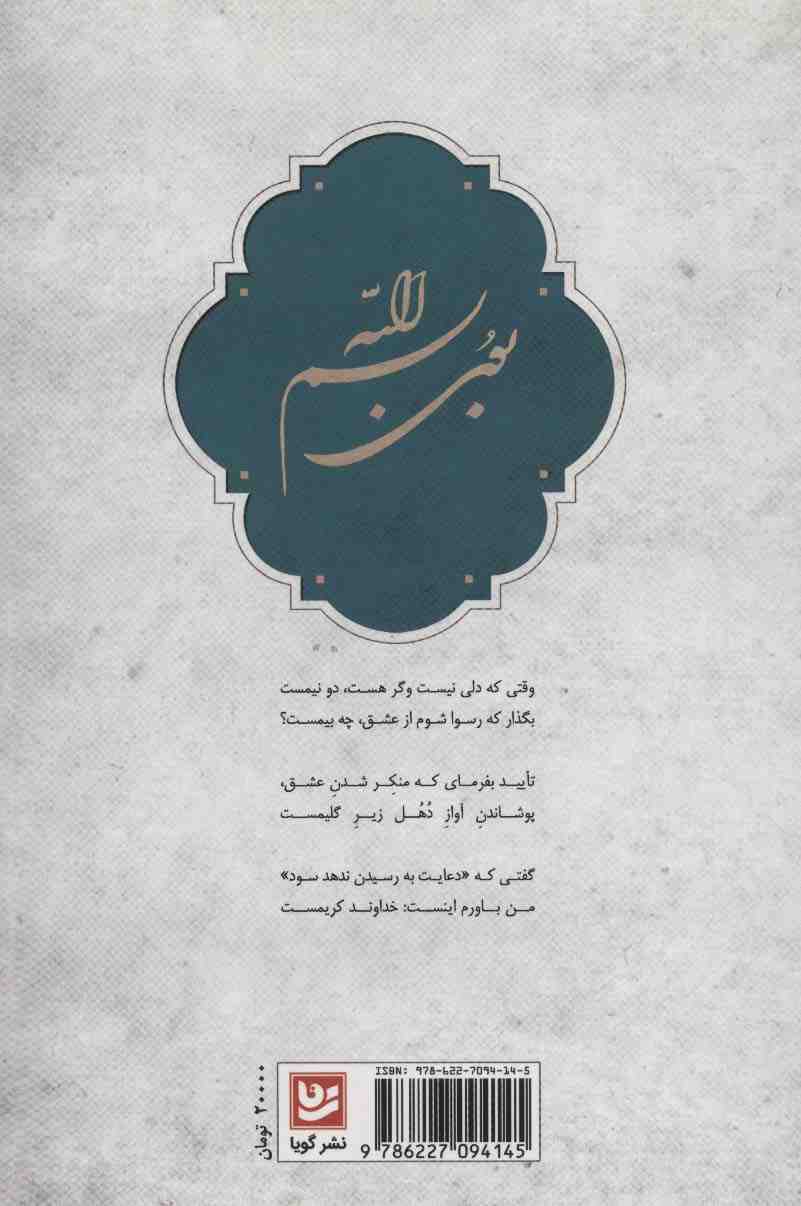 وقتی که دلی نیست وگر هست، دو نیمست
بگذار که رسوا شوم از عشق، چه بیمست؟
تأیید بفرمای که منکِر شدنِ عشق،
پوشاندنِ آوازِ دُهُل زیرِ گلیمست
گفتی که «دعایت به رسیدن ندهد سود»
من باورم اینست: خداوند کریمست
ISBN: 978-622-7094-14-5
نشر گویا
9 786227 094145
۲۰۰۰۰ تومان